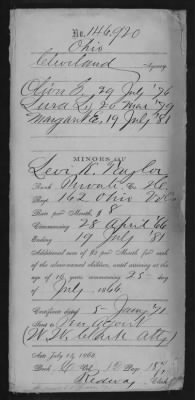 No. 146,920
Ohio
Cleveland Agency
29 July '76
Lura L. 20 Mar '79
Margaret E. 19 July '81
MINORS OF
Levi K. Naylor
Rank Private Co. K
Reg. 162 Ohio
Rate per Month, $ 8
Commencing 28 April '66
Ending 19 July '81
Additional sum of $2 per month for each
of the above-named children, until arriving at the
age of 16 years commencing 25th
of July 1866
Certificate dated 5 Jany '71
Sent to Pen. Agent
(W. W. Clark Atty)
Act July 14, 1862
Book Vol. Page
Clerk